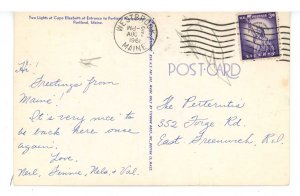 Two Lights at Cape Elizabeth at Entrance to Portland
Portland, Maine.
WESTBROOK
AUG
1961
MAINE
POST CARD
Hi!
Greetings from
Maine!
It's very nice to
be back here once
again!
Love,
Earl, Jennie, Nela, & Val.
The Perterutis
352 Forge Rd.
East Greenwich, R.I.